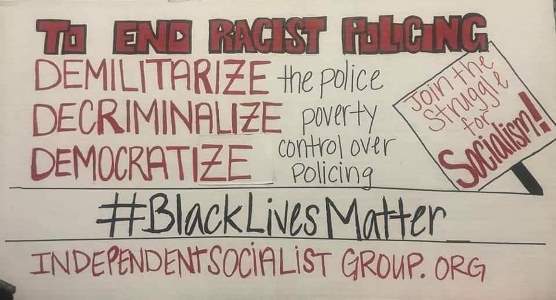 TO END RACIST POLICING
DEMILITARIZE the police
DECRIMINALIZE poverty
DEMOCRATIZE control over
Policing
Join the
Struggle
for
Socialism!
#BlackLivesMatter
INDEPENDENTSOCIALIST GROUP.ORG